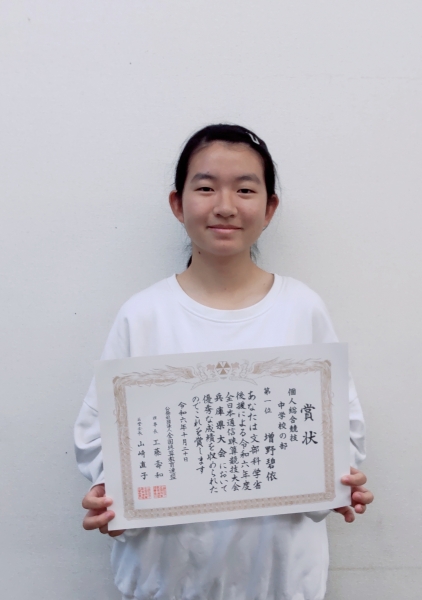 賞状
個人総合競技
中学校の部
第一位
増野碧依
あなたは文部科学省
後援による令和六年度
全日本通信珠算競技大会
兵庫県大会において
優秀な成績を収められた
のでこれを賞します
令和六年十月二十日
公益社団法人全国珠算教育連盟
理事長 工藤壽和
山崎直子